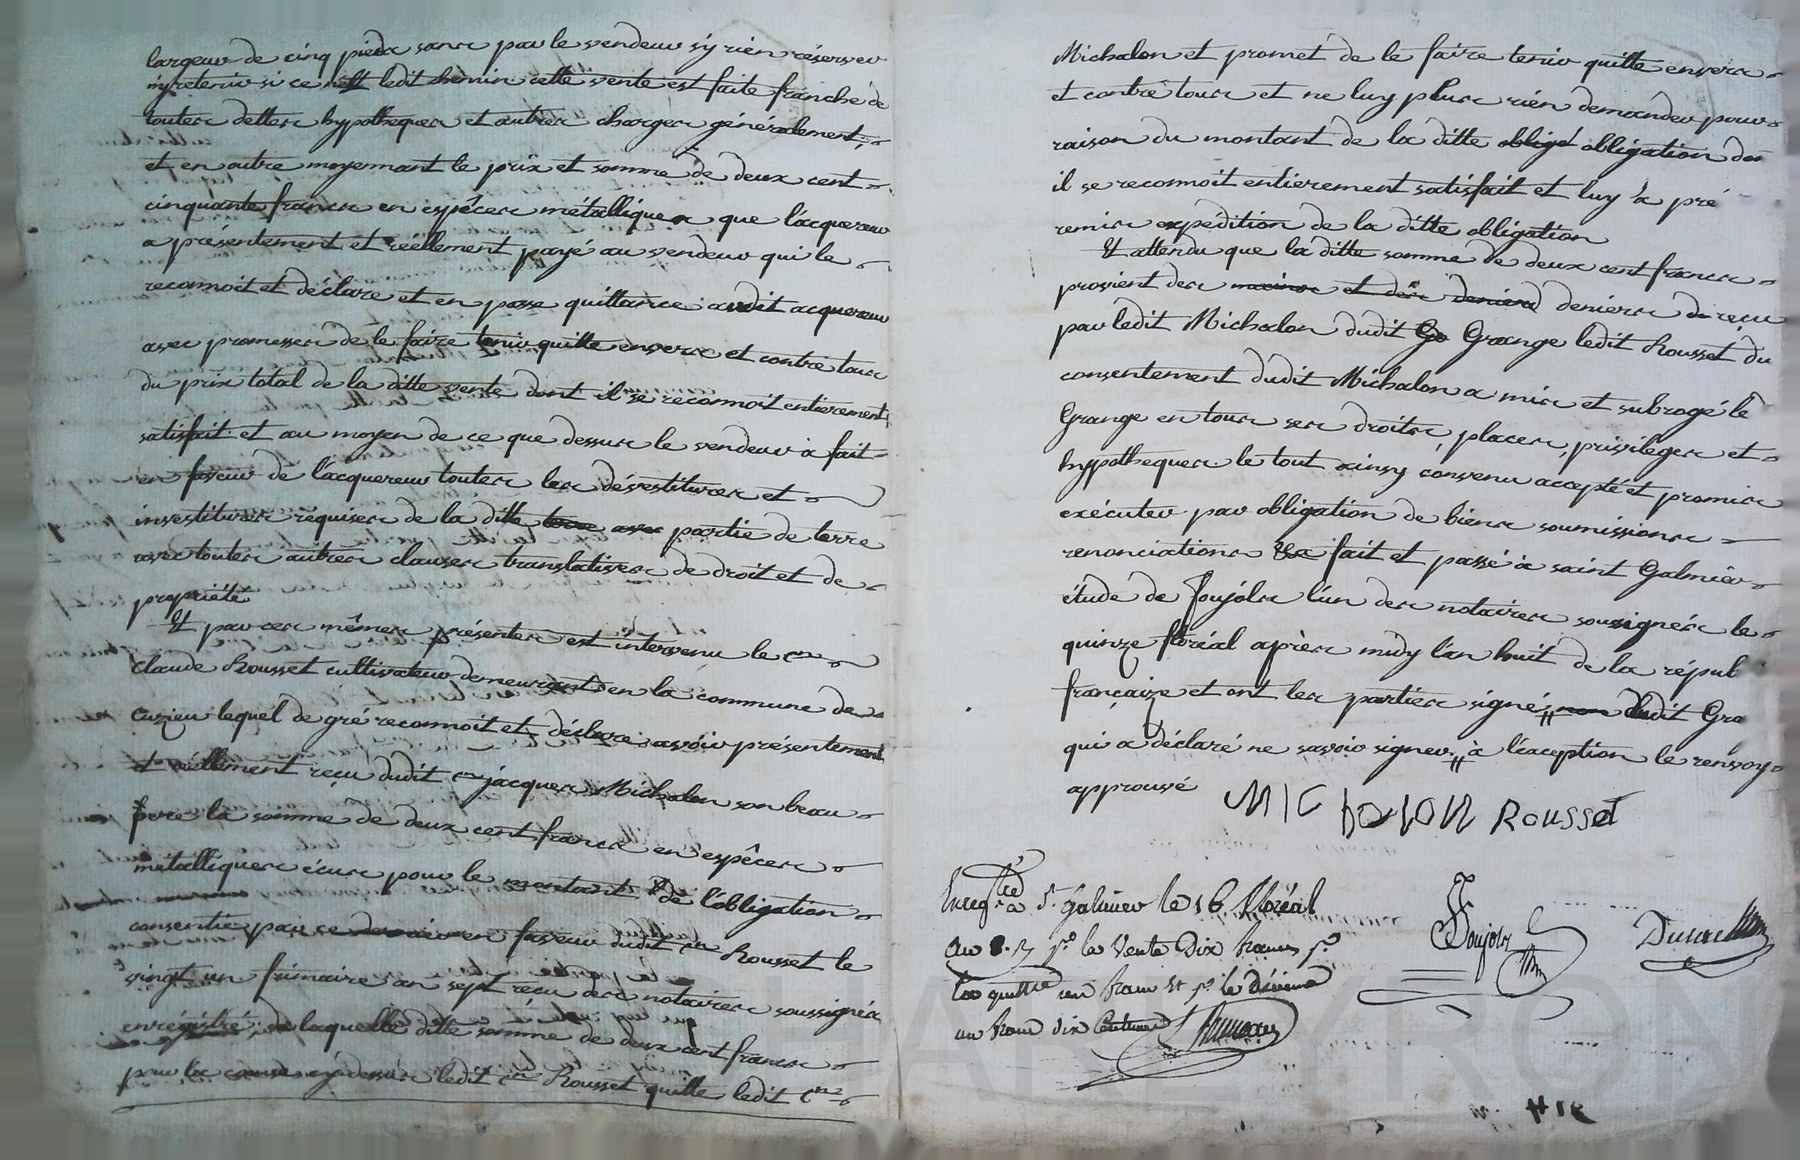 largeur de cinq pieds sans par le vendeur s'y rien réserver
n'y retenir si ce n'est ledit chemin cette vente est faite franche de
toutes dettes hypotheques et autres charges généralement,
et en outre moyennant le prix et somme de deux cent
cinquante francs en espêces métalliques que l'acquereur
a présentement et réellement payé au vendeur qui le
reconnoit et déclare et en passe quittance audit acquereur
avec promesse de le faire tenir quitte envers et contre tous
du prix total de la ditte vente dont il se reconnoit entierement
satisfait et au moyen de ce que dessus le vendeur a fait
en faveur de l'acquereur toutes les dévestitures et
investitures réquises de la ditte terre avec partie de terre
avec toutes autres clauses translatives de droit et de
propriété
Et par ces mêmes présentes est intervenu le c.en
Claude Rousset cultivateur demeurant en la commune de
Cuzieu lequel de gré reconnoit et déclare avoir présentement
et réellement reçu dudit c.en jacques Michalon son beau
pere la somme de deux cent francs en espêces
métalliques écus pour le montant de l'obligation
consentie par ce dernier en faveur dudit c.en Rousset le
vingt un frimaire an sept reçu des notaires soussignés
enrégistré, de laquelle ditte somme de deux cent francs
pour les causes cy dessus ledit c.en Rousset quitte ledit c.en
Michalon et promet de le faire tenir quitte envers
et contre tous et ne luy plus rien demander pour
raison du montant de la ditte obligé obligation de
il se reconnoit entierement satisfait et luy a pré
remis expédition de la ditte obligation
Et attendu que la ditte somme de deux cent francs
provient des mains et des deniers deniers du reçu
par ledit Michalon dudit Ge Grange ledit Rousset du
consentement dudit Michalon a mis et subrogé le
Grange en tous ses droits, places, privileges et
hypotheques le tout ainsy convenu accepté et promis
exécuter par obligation de biens soumissions
renonciations fait et passé à saint Galmier
étude de Poujols l'un des notaires soussignés le
quinze floréal après midy l'an huit de la répul
française et ont les parties signé, non dudit Gra
qui a déclaré ne savoir signer, à l'éxception le renvoy
approuvé
MICHALON Rousset
Enreg.tré à S.t Galmier le 16 floréal
an 8. R p.r la Vente Dix francs p.r
la quitt.ce un franc et p.r le décime
un franc dix Centimes
Poujols